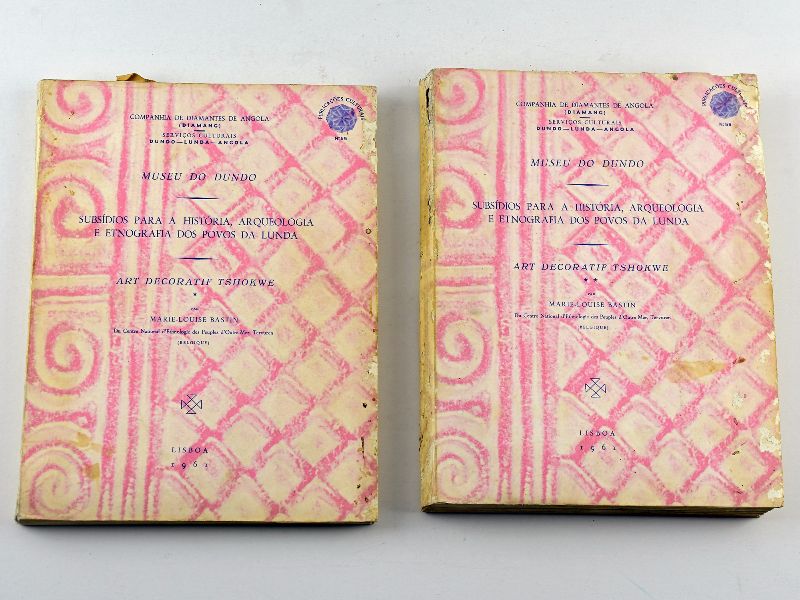 COMPANHIA DE DIAMANTES DE ANGOLA
(DIAMANG)
SERVIÇOS CULTURAIS
DUNDO—LUNDA—ANGOLA
PUBLICAÇÕES CULTURAIS
MUSEU DO DUNDO
SUBSÍDIOS PARA A HISTÓRIA, ARQUEOLOGIA
E ETNOGRAFIA DOS POVOS DA LUNDA
ART DECORATIF TSHOKWE
*
PAR
MARIE-LOUISE BASTIN
Du Centre National d'Ethnologie des Peuples d'Outre-Mer, Tervuren
(BELGIQUE)
LISBOA
1961
COMPANHIA DE DIAMANTES DE ANGOLA
(DIAMANG)
SERVIÇOS CULTURAIS
DUNDO—LUNDA—ANGOLA
PUBLICAÇÕES CULTURAIS
MUSEU DO DUNDO
SUBSÍDIOS PARA A HISTÓRIA, ARQUEOLOGIA
E ETNOGRAFIA DOS POVOS DA LUNDA
ART DECORATIF TSHOKWE
* *
PAR
MARIE-LOUISE BASTIN
Du Centre National d'Ethnologie des Peuples d'Outre-Mer, Tervuren
(BELGIQUE)
LISBOA
1961